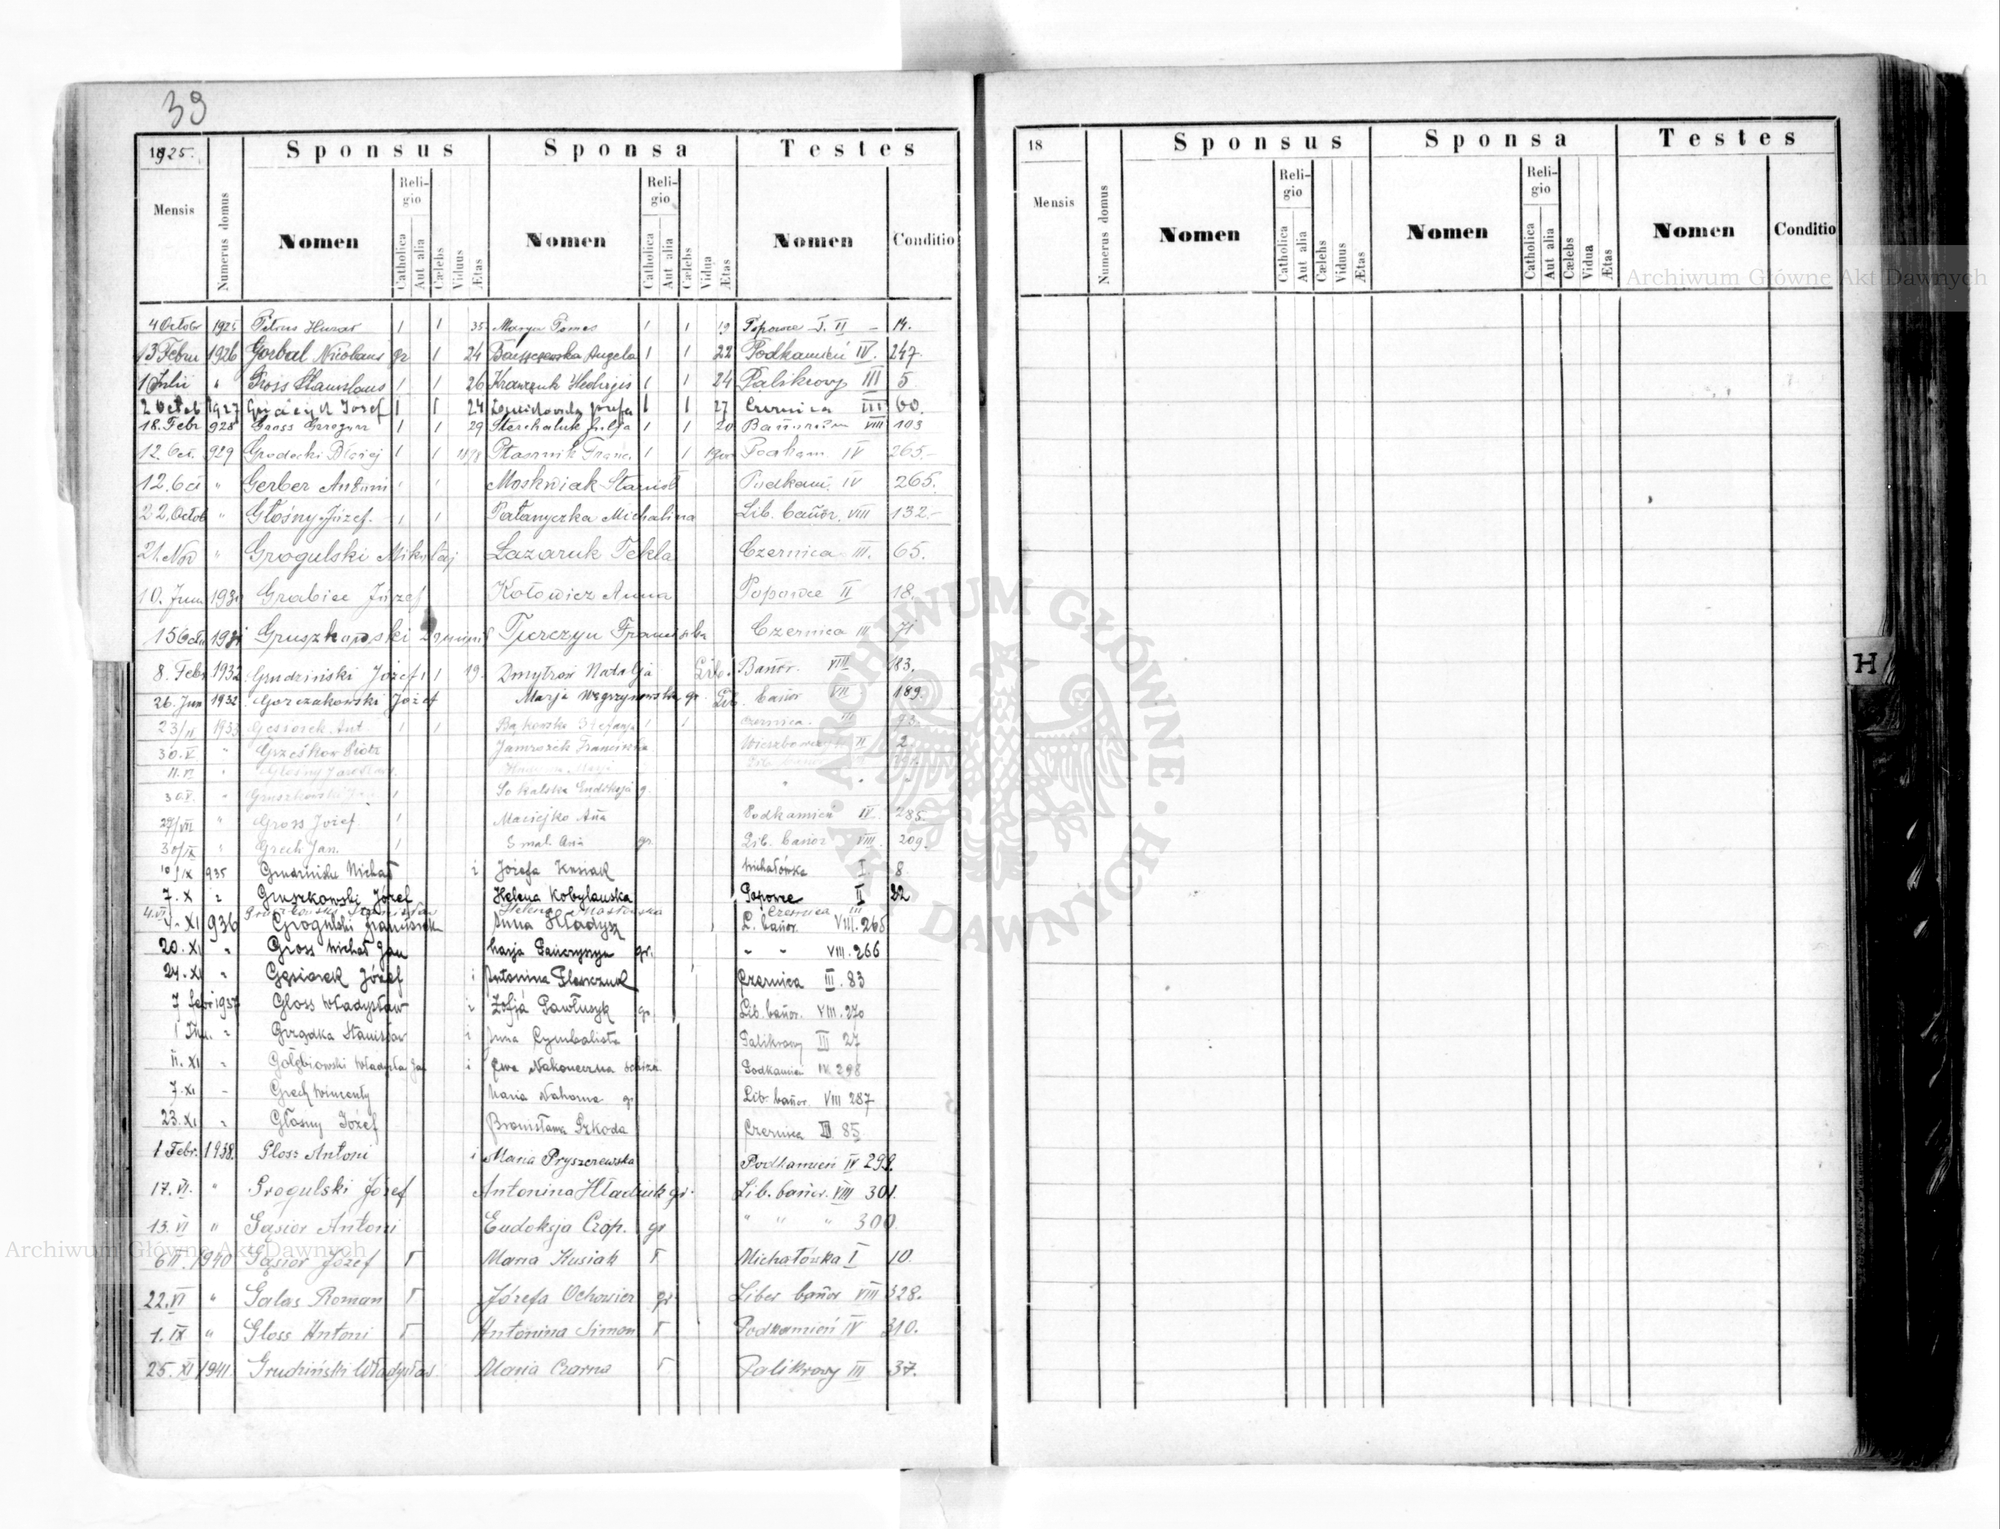 39
1925. Sponsus Sponsa Testes
Mensis Numerus domus Nomen Religio Catholica Aut alia Cælebs Viduus Ætas Nomen Religio Catholica Aut alia Cælebs Vidua Ætas Nomen Conditio
4 Octobr 1925 Petrus Huzar 1 1 35 Marya 1 1 19 Popowce T. II - 14.
13 Febru 1926 Gorbal Nicolaus gr 1 24 Angela 1 1 22 Podkamień IV. 247.
1 Julii " Gross Stanislaus 1 1 26 Krawczuk Hedvigis 1 1 24 Palikrowy III 5
2 Octob 1927 Josef 1 1 24 Josefa 1 1 27 Czernica III 60.
18. Febr 928 Gross Grzegorz 1 1 29 Julja 1 1 20 VIII 103
12. Oct. 929 Grodecki Błażej 1 1 1898 Ptasznik Franc. 1 1 1900 Podkam. IV 265.-
12. Oct " Gerber Antoni 1 1 Moskwiak Stanisł Podkam. IV 265.
22. Octob " Głośny Józef. 1 1 Pałanyczka Michalina Lib. bańor. VIII 132.-
21. Nov " Grogulski Mikołaj Łazaruk Tekla Czernica III. 65.
10. Juni 1930 Grabiec Józef Kołowicz Anna Popowce II 18.
15 Octo 1931 Gruszkowski Turczyn Franciszka Czernica III 71
8. Febr 1932 Grudziński Józef 1 1 19. Dmytrów Natalja Lib. Bańor. VIII 183.
26. Jun 1932 Gorczakowski Józef Marja Węgrzynowska gr. Lib. bańor VIII 189.
23/ 1933 Gąsiorek Ant. 1 1 Bąkowska Stefanja 1 1 Czernica. III 73.
30. V " Grześków Piotr Jamrozik Franciszka II 2
11. VI " Głośny Jarosław. Lib. bańor
30. V. " Gruszkowski 1 Sokalska Eudoksja g. " "
29/VII " Gross Józef 1 Maciejko Ana Podkamień IV. 285.
30/IX " Grech Jan. 1 gr. Lib. bańor VIII. 209.
10/IX 935 Grudziński Michał i Józefa Kusiak Michałówka I. 8
7. X " Gruszkowski Józef Helena Kobylańska Popowce II 22
4. VI Helena Czernica III
XI 936 Grogulski Franciszek Anna Hładysz L. bańor. VIII. 265
20. XI " Gross Michał Jan Marja gr. - - VIII. 266
24. XI " Gąsiorek Józef i Antonina Czernica III. 83
7 Febr 1937 Gloss Władysław i Zofja Pawłuszyk gr. Lib. bańor. VIII. 270
1 " Grządka Stanisław i Anna Cymbalista Palikrowy III 27
11. XI " Gołębiowski Władysław Jan i Ewa Nakoneczna schizm. Podkamień IV. 298
7. XI - Grech Wincenty Maria Nahorna gr Lib. bańor. VIII 287
23. XI " Głośny Józef Bronisława Szkoda Czernica III 85
1 Febr. 1938. Gloss Antoni i Maria Pryszczewska Podkamień IV 299.
17. VI. " Grogulski Józef Antonina Hładiuk gr. Lib. bańor. VIII 301.
13. VI " Gąsior Antoni Eudoksja Czop. gr " " " 300.
6 II. 1940 Gąsior Józef Γ Maria Kusiak Γ Michałówka I 10.
22. VI " Galas Roman Γ Józefa Ochowicz gr. Liber bańor VIII 328.
1. IX " Gloss Antoni Γ Antonina Simon Γ Podkamień IV 310.
25. XI 1941. Grudziński Władysław Maria Czarna Γ Palikrowy III 37.
18 Sponsus Sponsa Testes
Mensis Numerus domus Nomen Religio Catholica Aut alia Cælebs Viduus Ætas Nomen Religio Catholica Aut alia Cælebs Vidua Ætas Nomen Conditio
H
Archiwum Główne Akt Dawnych
Archiwum Główne Akt Dawnych
ARCHIWUM GŁÓWNE · AKT DAWNYCH ·